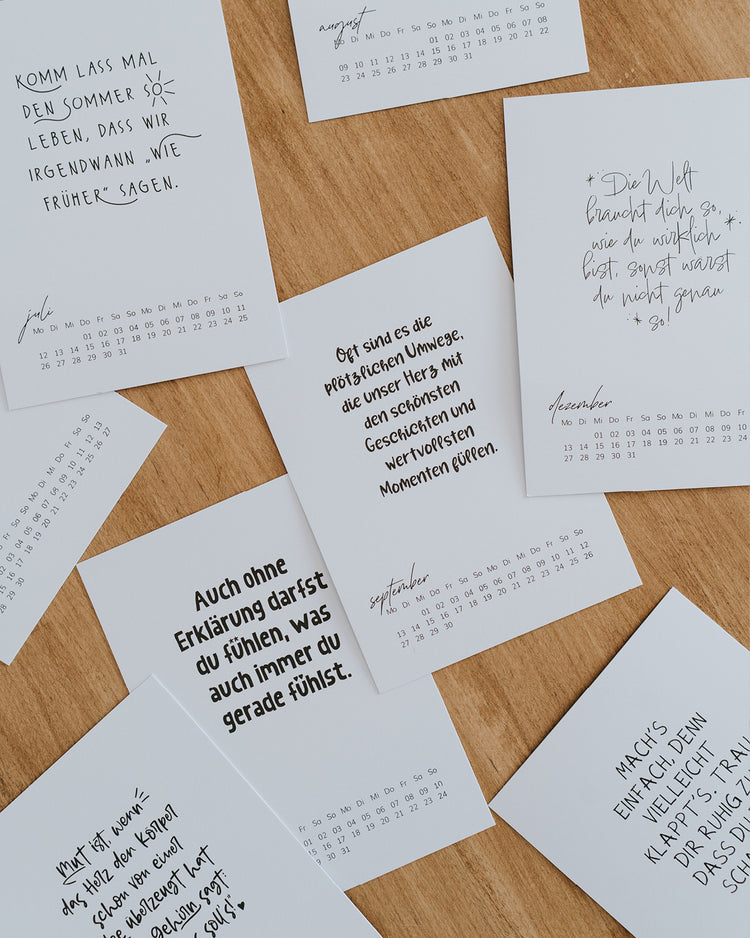 KOMM LASS MAL
DEN SOMMER SO
LEBEN, DASS WIR
IRGENDWANN „WIE
FRÜHER" SAGEN.
juli
Mo Di Mi Do Fr Sa So Mo Di Mi Do Fr Sa So
01 02 03 04 05 06 07 08 09 10 11
12 13 14 15 16 17 18 19 20 21 22 23 24 25
26 27 28 29 30 31
august
Mo Di Mi Do Fr Sa So Mo Di Mi Do Fr Sa So
01 02 03 04 05 06 07 08
09 10 11 12 13 14 15 16 17 18 19 20 21 22
23 24 25 26 27 28 29 30 31
Die Welt
braucht dich so,
wie du wirklich
bist, sonst wärst
du nicht genau
so!
dezember
Mo Di Mi Do Fr Sa So Mo Di Mi Do Fr
01 02 03 04 05 06 07 08 09 10
13 14 15 16 17 18 19 20 21 22 23 24
27 28 29 30 31
Oft sind es die
plötzlichen Umwege,
die unser Herz mit
den schönsten
Geschichten und
wertvollsten
Momenten füllen.
september
Mo Di Mi Do Fr Sa So Mo Di Mi Do Fr Sa So
01 02 03 04 05 06 07 08 09 10 11 12
13 14 15 16 17 18 19 20 21 22 23 24 25 26
27 28 29 30
Sa So Mo Di Mi Do Fr Sa So
04 05 06 07 08 09 10 11 12 13
16 17 18 19 20 21 22 23 24 25 26 27
Auch ohne
Erklärung darfst
du fühlen, was
auch immer du
gerade fühlst.
Fr Sa So Mo Di Mi Do Fr Sa So
01 02 03 04 05 06 07 08 09 10
16 17 18 19 20 21 22 23 24
30 31
Mut ist, wenn
das Herz den Körper
schon von einer
überzeugt hat
gehirn sagt:
soll's!"
MACH'S
EINFACH, DENN
VIELLEICHT
KLAPPT'S. TRAU
DIR RUHIG
DASS DU